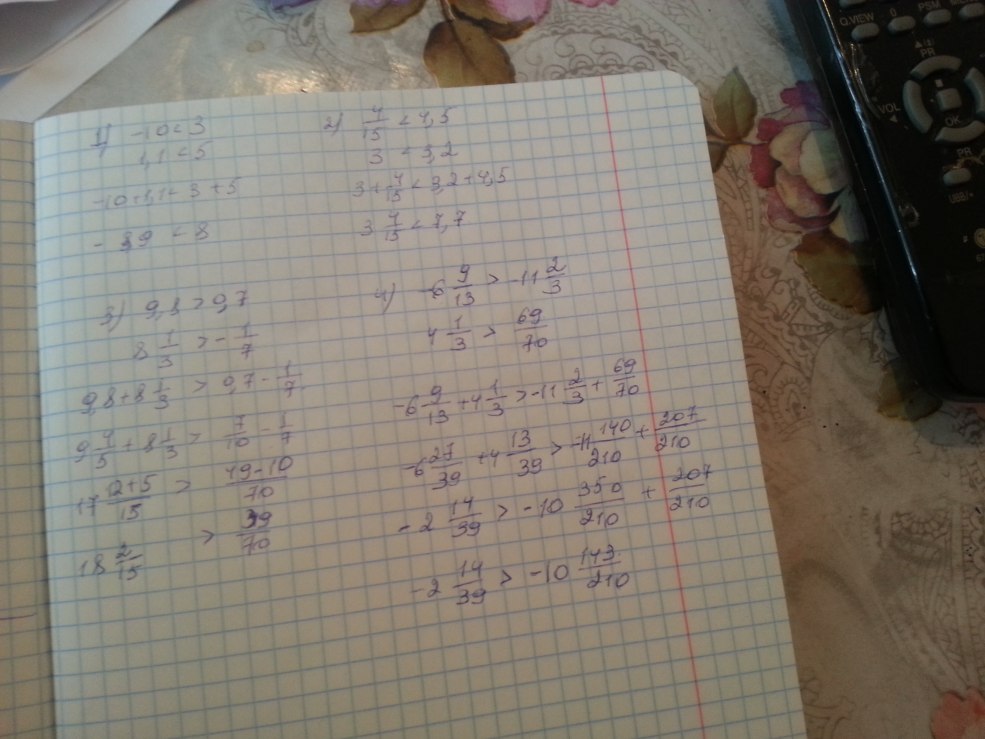 1) -10 < 3
1,1 < 5
-10+1,1 < 3 + 5
- 8,9 < 8
2) 7/15 < 4,5
3 < 3,2
3 + 7/15 < 3,2+4,5
3 7/15 < 7,7
3) 9,8 > 0,7
8 1/3 > - 1/7
9,8+8 1/3 > 0,7 - 1/7
9 4/5 + 8 1/3 > 7/10 - 1/7
17 (12+5)/15 > (49-10)/70
18 2/15 > 39/70
4) -6 9/13 > -11 2/3
4 1/3 > 69/70
-6 9/13 +4 1/3 > -11 2/3 + 69/70
-6 27/39 +4 13/39 > -11 140/210 + 207/210
- 2 14/39 > -10 350/210 + 207/210
-2 14/39 > -10 143/210
Q.VIEW
0
PSM
PR
VOL
OK
PR